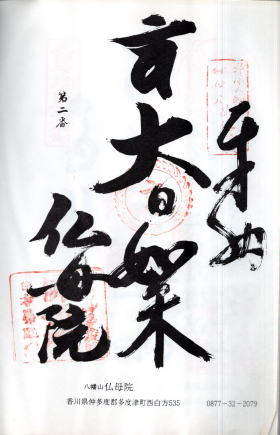 奉納
第二番
大日如来
仏母院
八幡山 仏母院
香川県仲多度郡多度津町西白方535 0877-32-2079